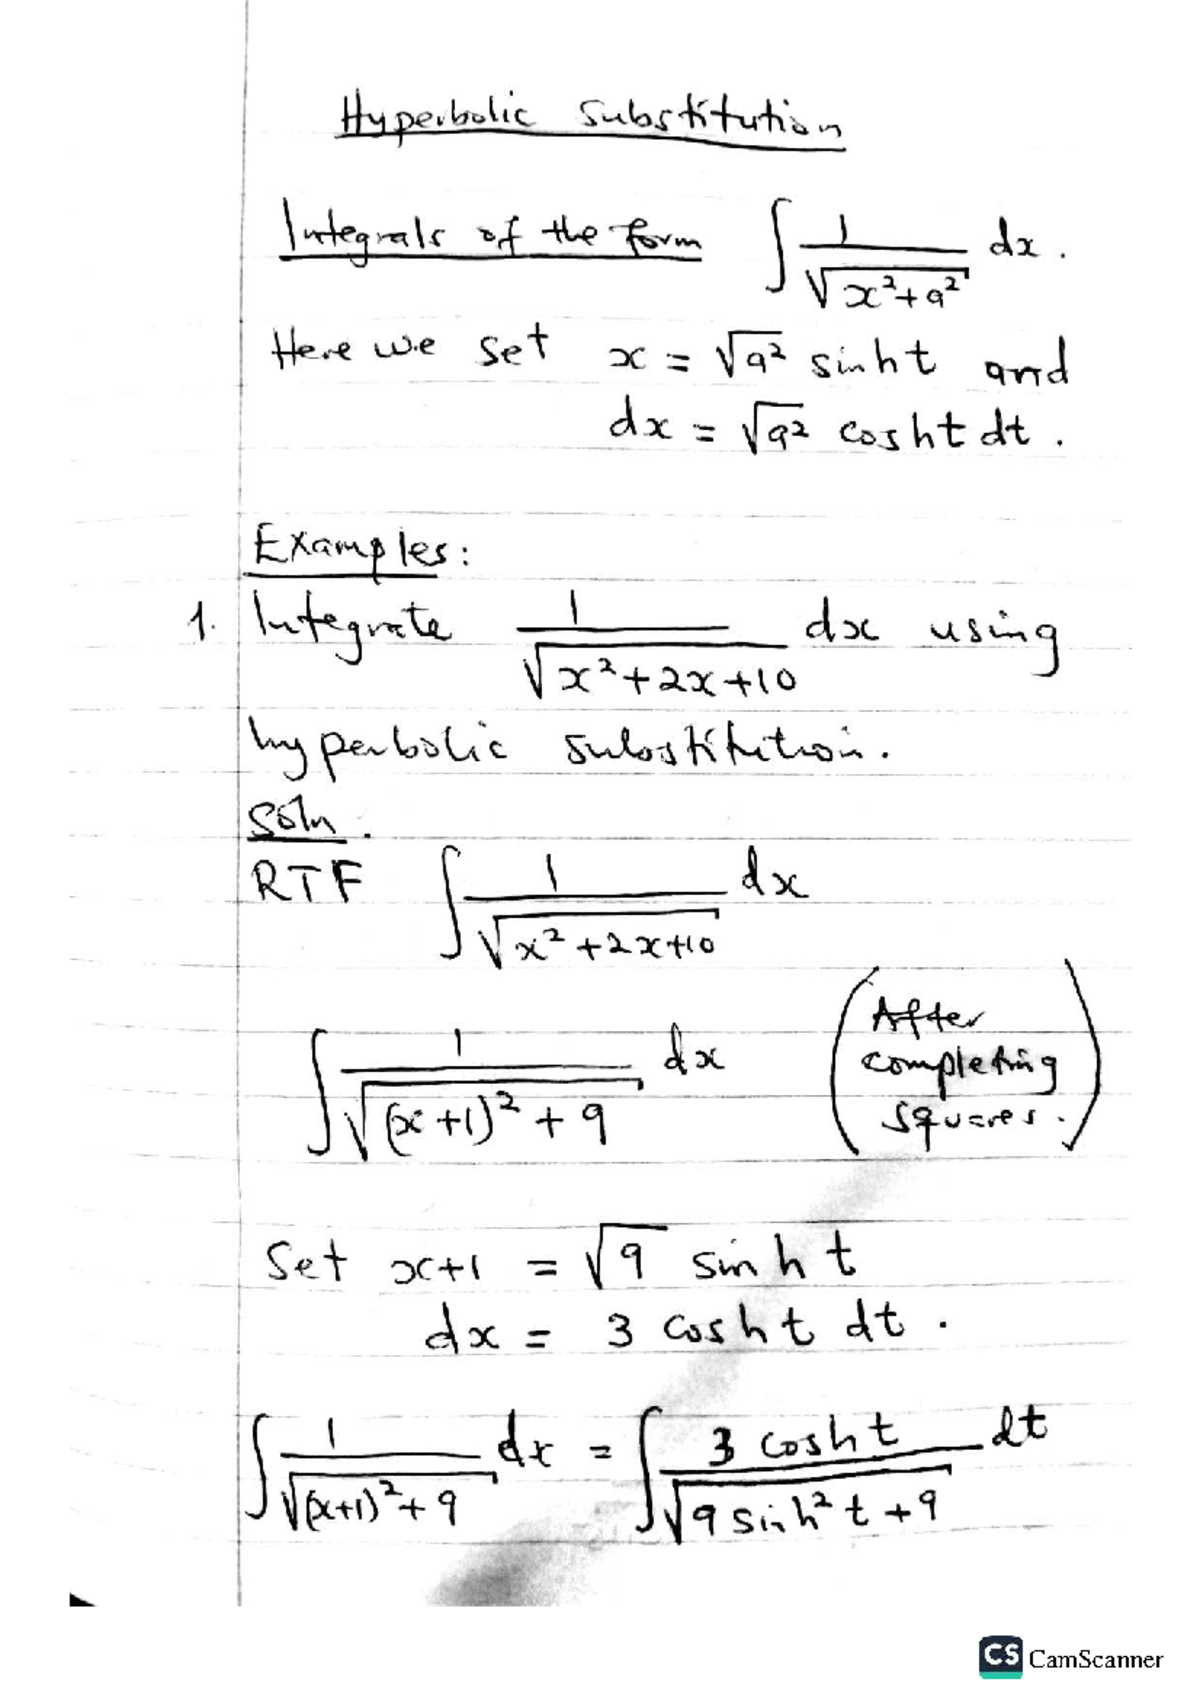 Hyperbolic Substitution
Integrals of the form ∫ 1/√(x²+a²) dx.
Here we set x = √a² sinh t and
dx = √a² cosh t dt.
Examples:
1. Integrate 1/√(x²+2x+10) dx using
hyperbolic substitution.
Soln.
RTF ∫ 1/√(x²+2x+10) dx
∫ 1/√((x+1)²+9) dx (After completing squares.)
Set x+1 = √9 sinh t
dx = 3 cosh t dt.
∫ 1/√((x+1)²+9) dx = ∫ 3 cosh t/√(9 sinh² t +9) dt
CS CamScanner